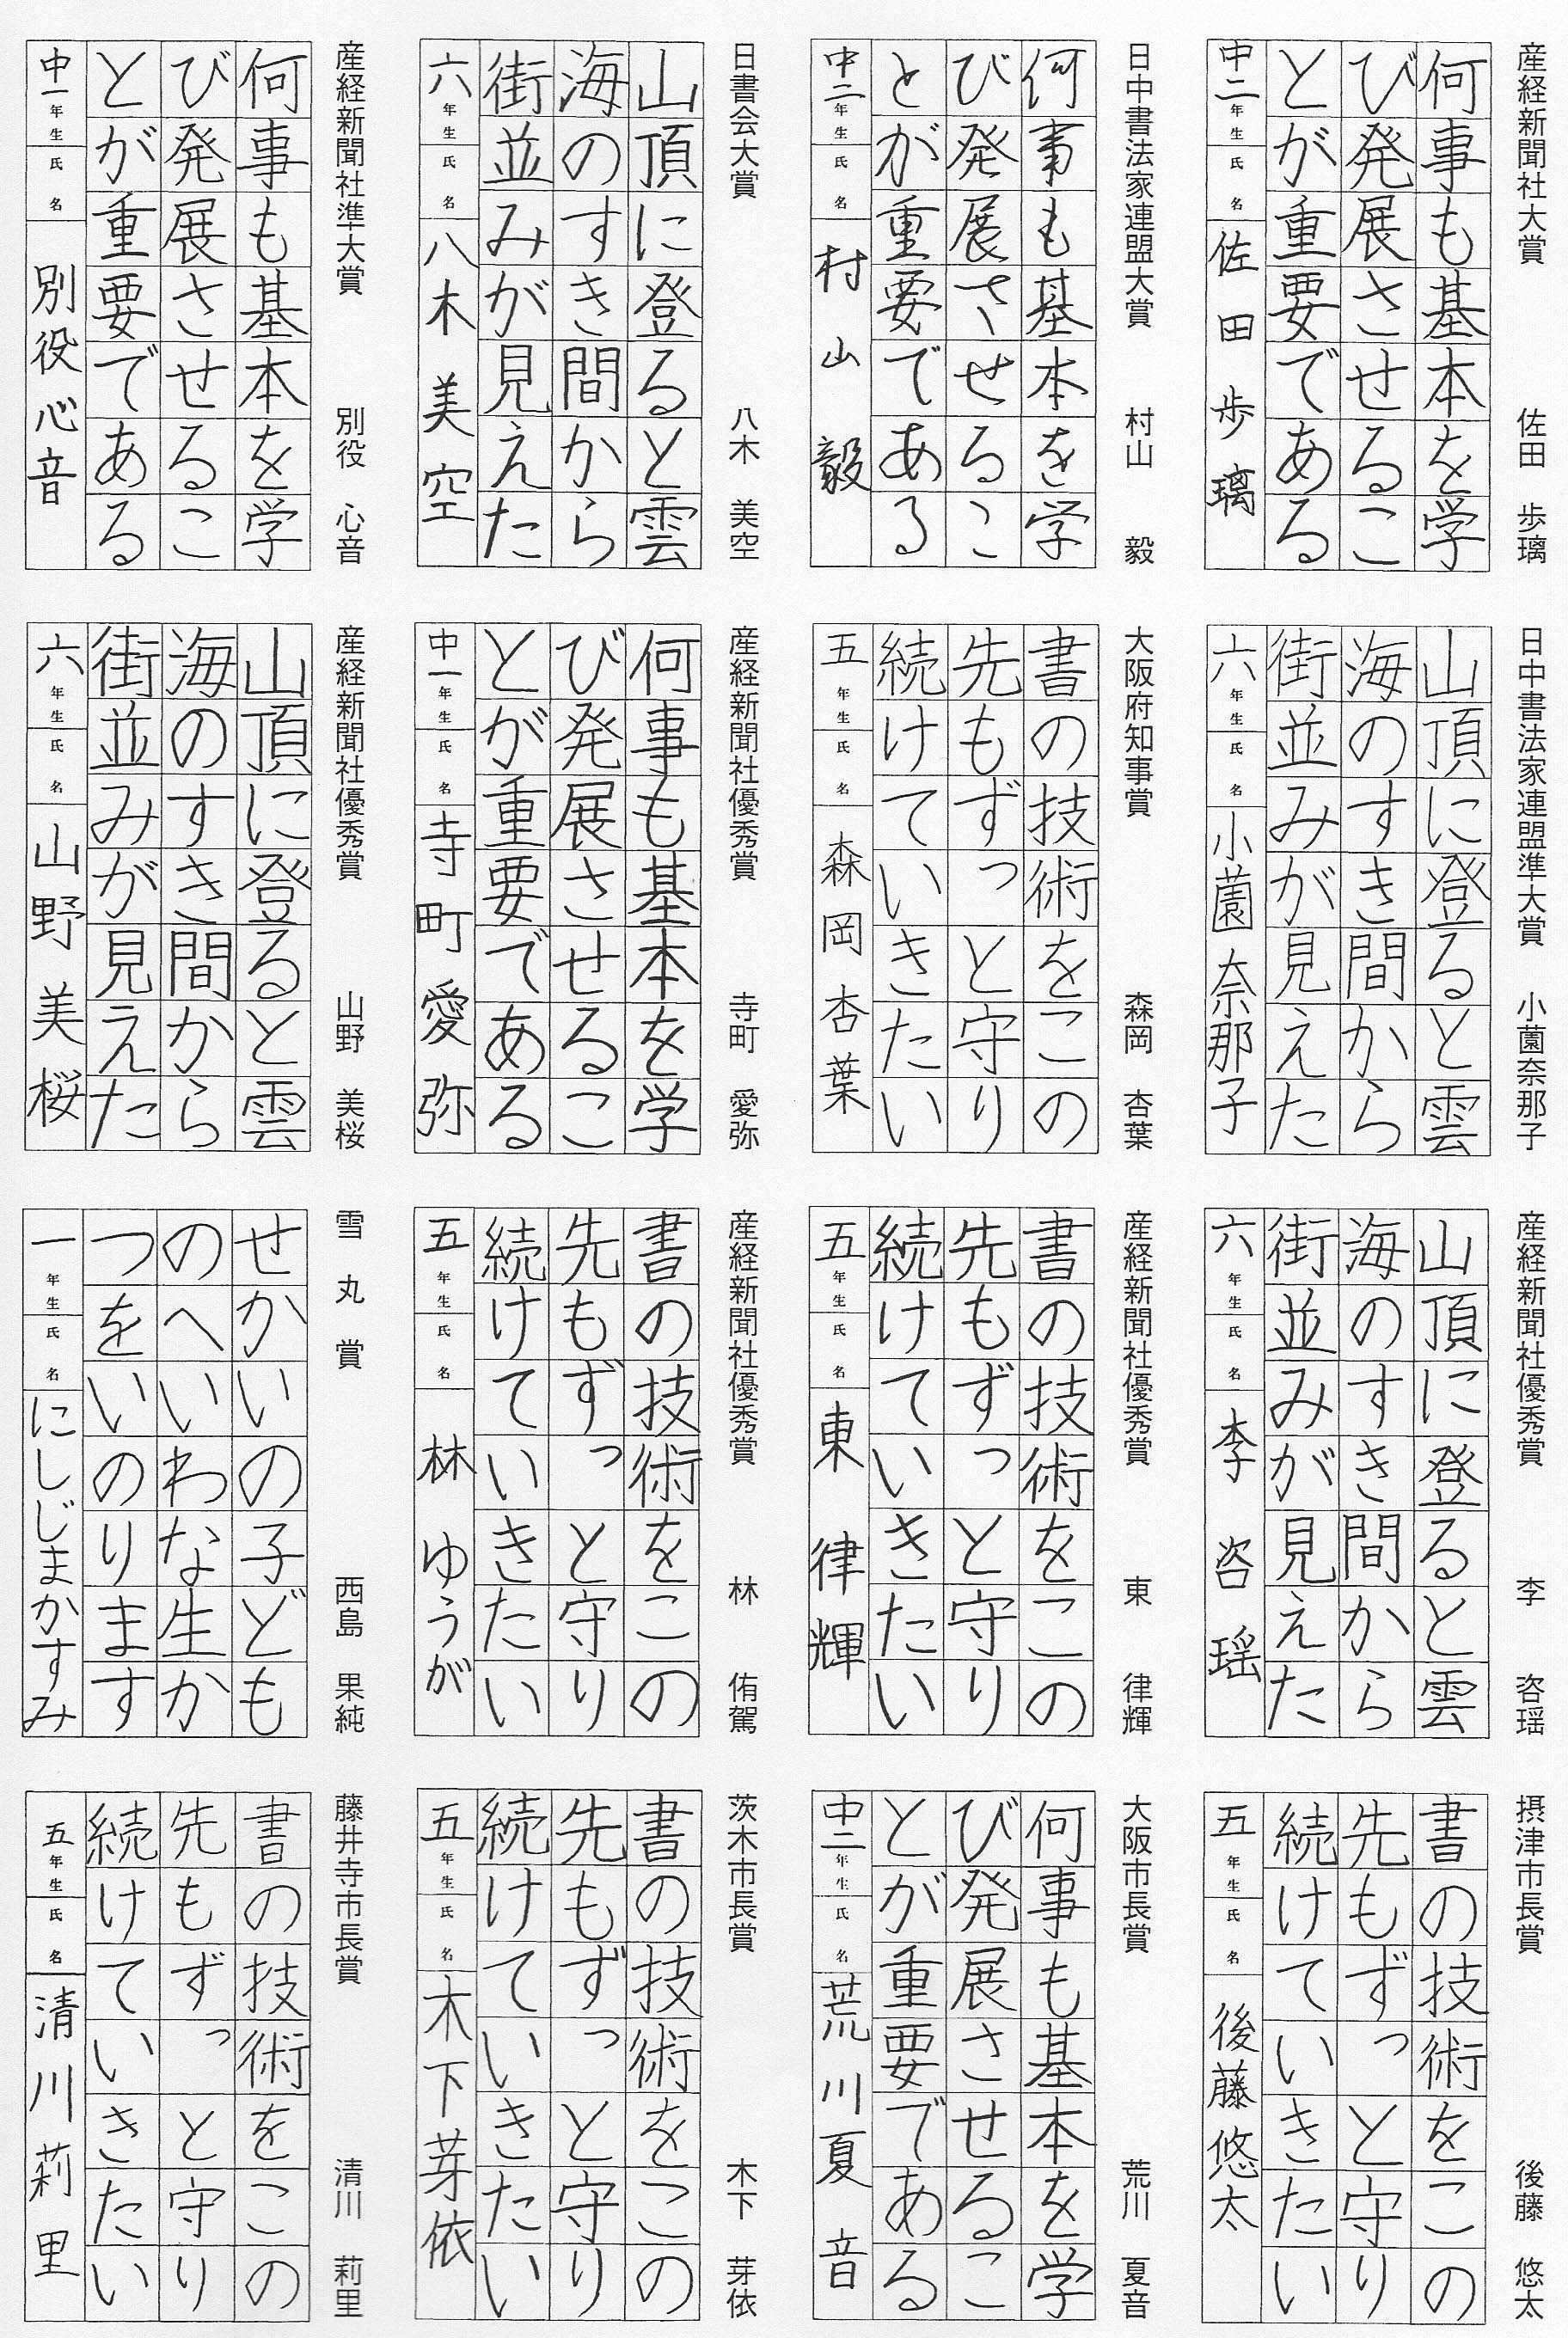 産経新聞社大賞 佐田 歩璃
何事も基本を学
び発展させるこ
とが重要である
中二年生 氏名 佐田歩璃
日中書法家連盟大賞 村山 毅
何事も基本を学
び発展させるこ
とが重要である
中二年生 氏名 村山毅
日書会大賞 八木 美空
山頂に登ると雲
海のすき間から
街並みが見えた
六年生 氏名 八木美空
産経新聞社準大賞 別役 心音
何事も基本を学
び発展させるこ
とが重要である
中一年生 氏名 別役心音
日中書法家連盟準大賞 小薗奈那子
山頂に登ると雲
海のすき間から
街並みが見えた
六年生 氏名 小薗奈那子
大阪府知事賞 森岡 杏葉
書の技術をこの
先もずっと守り
続けていきたい
五年生 氏名 森岡杏葉
産経新聞社優秀賞 寺町 愛弥
何事も基本を学
び発展させるこ
とが重要である
中一年生 氏名 寺町愛弥
産経新聞社優秀賞 山野 美桜
山頂に登ると雲
海のすき間から
街並みが見えた
六年生 氏名 山野美桜
産経新聞社優秀賞 李 咨瑶
山頂に登ると雲
海のすき間から
街並みが見えた
六年生 氏名 李咨瑶
産経新聞社優秀賞 東 律輝
書の技術をこの
先もずっと守り
続けていきたい
五年生 氏名 東律輝
産経新聞社優秀賞 林 侑駕
書の技術をこの
先もずっと守り
続けていきたい
五年生 氏名 林ゆうが
雪丸賞 西島 果純
せかいの子ども
のへいわな生か
つをいのります
一年生 氏名 にしじまかすみ
摂津市長賞 後藤 悠太
書の技術をこの
先もずっと守り
続けていきたい
五年生 氏名 後藤悠太
大阪市長賞 荒川 夏音
何事も基本を学
び発展させるこ
とが重要である
中二年生 氏名 荒川夏音
茨木市長賞 木下 芽依
書の技術をこの
先もずっと守り
続けていきたい
五年生 氏名 木下芽依
藤井寺市長賞 清川 莉里
書の技術をこの
先もずっと守り
続けていきたい
五年生 氏名 清川莉里